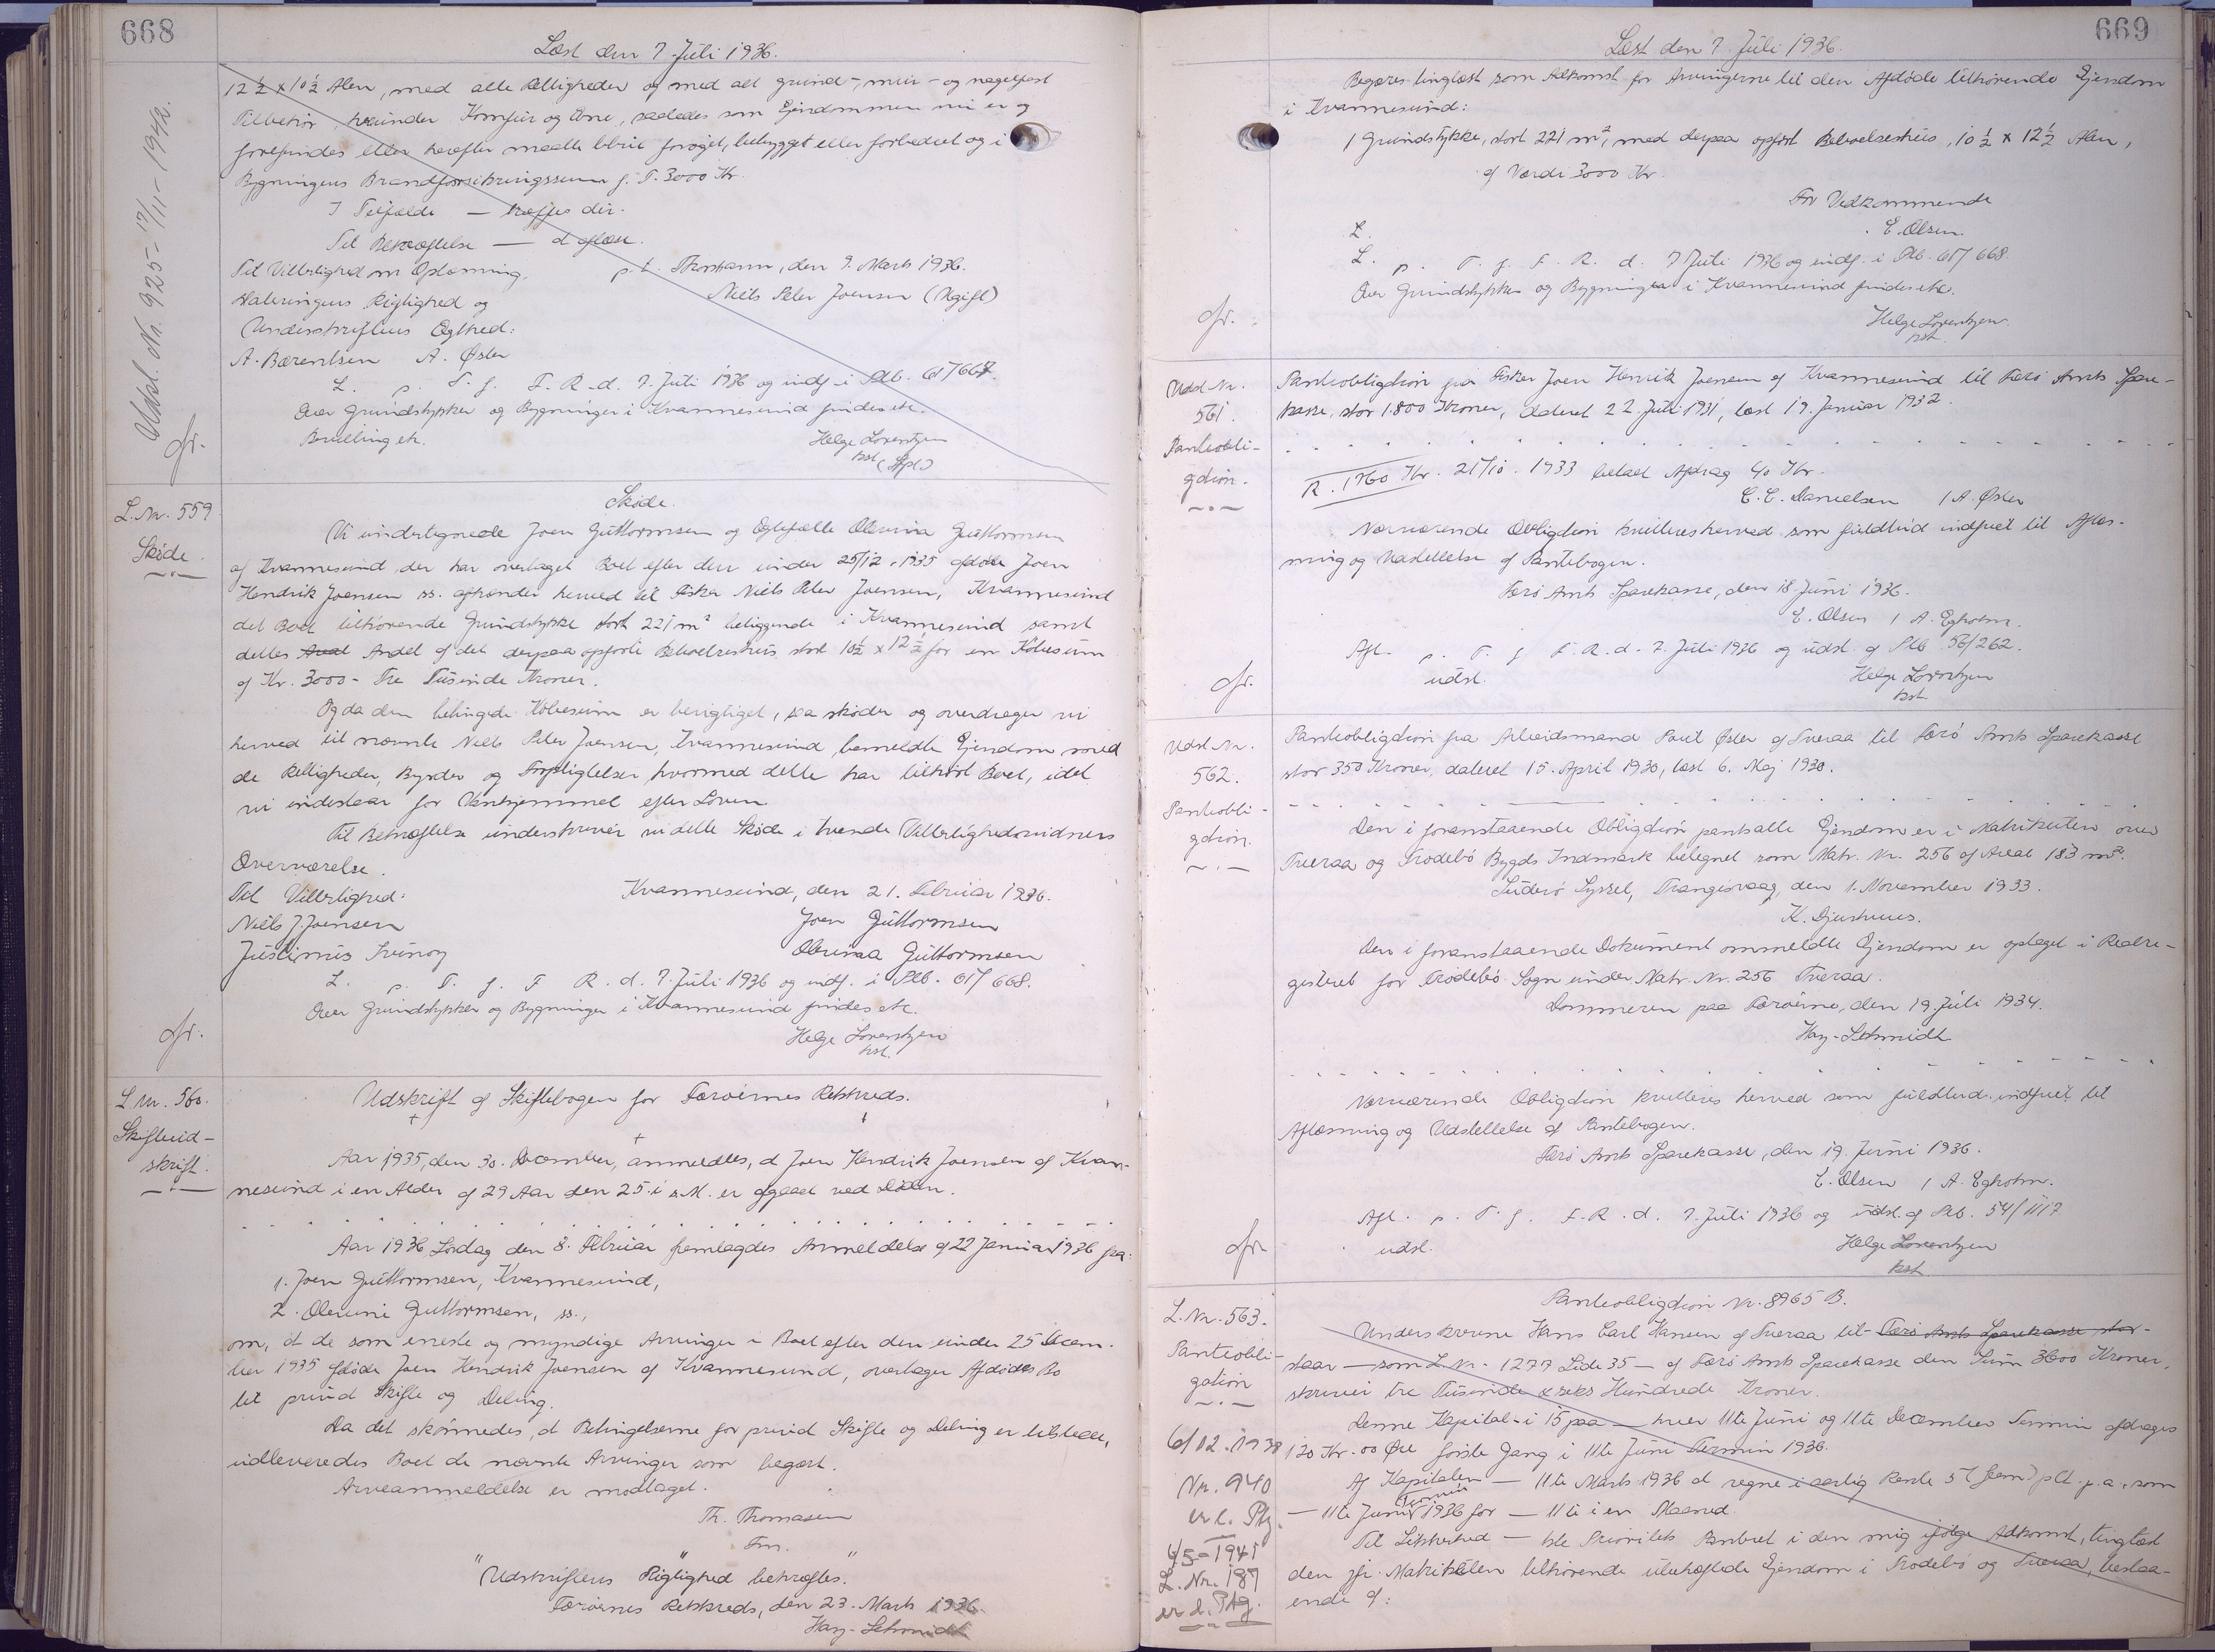 668
Læst den 7. Juli 1936.
12½ x 10½ Alen, med alle Rettigheder og med alt grund-, mur- og nagelfast
Tilbehør, herunder Komfur og Ovne, saaledes som Ejendommen nu er og
forefindes eller herefter maatte blive forøget, bebygget eller forbedret og i
Bygningens Brandforsikringssum p. T. 3000 Kr.
I Tilfælde — træffes dér.
Til Bekræftelse — d aflæse.
Til Vitterlighed om Oplæsning, p.t. Thorshavn, den 9. Marts 1936.
Dateringens Rigtighed og Niels Peter Joensen (Ugift)
Underskriftens Ægthed:
A. Bærentsen A. Øster
L. p. T. f. F. R. d. 7. Juli 1936 og indf. i Ptb. 61/667.
Over Grundstykker og Bygninger i Kvannesund findes etc.
Bevilling etc. Helge Lorentzen
kst. (Spl)
Afr.
Udsl. Nr. 925 - 17/11 - 1942.
L. Nr. 559
Skøde.
Skøde.
Vi undertegnede Joen Guttormsen og Ægtefælle Olevina Guttormsen
af Kvannesund der har overtaget Boet efter den under 25/12. 1935 afdøde Joen
Hendrik Joensen ss. afhænder herved til Fisker Niels Peter Joensen, Kvannesund
det Boet tilhørende Grundstykke stort 221 m² beliggende i Kvannesund samt
dettes Andel af det derpaa opførte Beboelseshus stort 10½ x 12½ for en Købesum
af Kr. 3000 - Tre Tusinde Kroner.
Og da den betingede Købesum er berigtiget, saa skøder og overdrager vi
herved til nævnte Niels Peter Joensen, Kvannesund, bemeldte Ejendom med
de Rettigheder, Byrder og Forpligtelser hvormed dette har tilhørt Boet, idet
vi indestaar for Vanhjemmel efter Loven.
Til Bekræftelse underskriver vi dette Skøde i tvende Vitterlighedsvidners
Overværelse.
Til Vitterlighed: Kvannesund, den 21. Februar 1936.
Niels J. Joensen Joen Guttormsen
Justinus Svinoy Olevina Guttormsen
L. p. T. f. F. R. d. 7. Juli 1936 og indf. i Ptb. 61/668.
Over Grundstykker og Bygninger i Kvannesund findes etc.
Helge Lorentzen
kst.
Afr.
L. Nr. 560.
Skifteud-
skrift.
Udskrift af Skiftebogen for Færøernes Retskreds.
Aar 1935, den 30. December, anmeldtes, at Joen Hendrik Joensen af Kvan-
nesund i en Alder af 29 Aar den 25. i s. M. er afgaaet ved Døden.
Aar 1936, Lørdag den 8. Februar fremlagdes Anmeldelse af 22 Januar 1936 fra:
1. Joen Guttormsen, Kvannesund,
2. Olevine Guttormsen, ss.,
om, at de som eneste og myndige Arvinger i Boet efter den under 25 Decem-
ber 1935 afdøde Joen Hendrik Joensen af Kvannesund, overtager Afdødes Bo
til privat Skifte og Deling.
Da det skønnedes, at Betingelserne for privat Skifte og Deling er tilstede,
udleveredes Boet de nævnte Arvinger som begært.
Arveanmeldelse er modtaget.
Th. Thomasen
Fm.
Udskriftens Rigtighed bekræftes.
Færøernes Retskreds, den 23. Marts 1936.
Hay-Schmidt
669
Læst den 7. Juli 1936.
Begæres tinglæst som Adkomst for Arvingerne til den Afdøde tilhørende Ejendom
i Kvannesund:
1 Grundstykke, stort 221 m², med derpaa opført Beboelseshus, 10½ x 12½ Alen,
af Værdi 3000 Kr.
For Vedkommende
L. E. Olsen.
L. p. T. f. F. R. d. 7 Juli 1936 og indf. i Ptb. 61/668.
Over Grundstykker og Bygninger i Kvannesund findes etc.
Helge Lorentzen.
kst.
Afr.
Udsl. Nr.
561.
Panteobli-
gation.
Panteobligation fra Fisker Joen Henrik Joensen af Kvannesund til Færø Amts Spare-
kasse, stor 1.800 Kroner, dateret 22. Juli 1931, læst 19. Januar 1932.
R. 1760 Kr. 21/10. 1933 betalt Afdrag 40 Kr.
C. C. Danielsen / A. Øster
Nærværende Obligation kvitteres herved som fuldtud indfriet til Aflæs-
ning og Udslettelse af Pantebogen.
Færø Amts Sparekasse, den 18. Juni 1936.
E. Olsen / A. Egholm.
Afl. p. T. f. F. R. d. 7. Juli 1936 og udsl. af Ptb. 56/262.
udsl. Helge Lorentzen
kst.
Afr.
Udsl. Nr.
562.
Panteobli-
gation.
Panteobligation fra Arbeidsmand Poul Øster af Tveraa til Færø Amts Sparekasse
stor 350 Kroner, dateret 15. April 1930, læst 6. Maj 1930.
Den i foranstaaende Obligation pantsatte Ejendom er i Matrikulen over
Tveraa og Frodebø Bygds Indmark betegnet som Matr. Nr. 256 af Areal 183 m².
Suderø Syssel, Trangisvaag, den 1. November 1933.
K. Djurhuus.
Den i foranstaaende Dokument ommeldte Ejendom er optaget i Realre-
gisteret for Frodebø Sogn under Matr. Nr. 256 Tveraa.
Dommeren paa Færøerne, den 19. Juli 1934.
Hay-Schmidt
Nærværende Obligation kvitteres herved som fuldtud indfriet til
Aflæsning og Udslettelse af Pantebogen.
Færø Amts Sparekasse, den 19. Juni 1936.
E. Olsen / A. Egholm.
Afl. p. T. f. F. R. d. 7. Juli 1936 og udsl. af Ptb. 54/1117
udsl. Helge Lorentzen
kst.
Afr.
L. Nr. 563.
Panteobli-
gation
6/12. 1938
Nr. 940
er l. Ptg.
4/5 - 1941
L. Nr. 187
er l. Ptg.
Panteobligation Nr. 8965 B.
Underskrevne Hans Carl Hansen af Tveraa til- Færø Amts Sparekasse stor-
staar — som L. Nr. 1277 Lide 35 — af Færø Amts Sparekasse den Sum 3600 Kroner,
skriver tre Tusinde & seks Hundrede Kroner.
Denne Kapital - i 15 paa — hver 11te Juni og 11te December Termin afdrages
120 Kr. 00 Øre første Gang i 11te Juni Termin 1936.
Af Kapitalen — 11te Marts 1936 at regne i aarlig Rente 5 (fem) pCt. p. a. som
— 11te Juni Termin 1936 for — 11te i en Maaned.
Til Sikkerhed — 1ste Prioritets Panteret i den mig ifølge Adkomst, tinglæst
den jfr. Matrikulen tilhørende ubehæftede Ejendom i Frodebø og Tveraa, bestaa-
ende af: